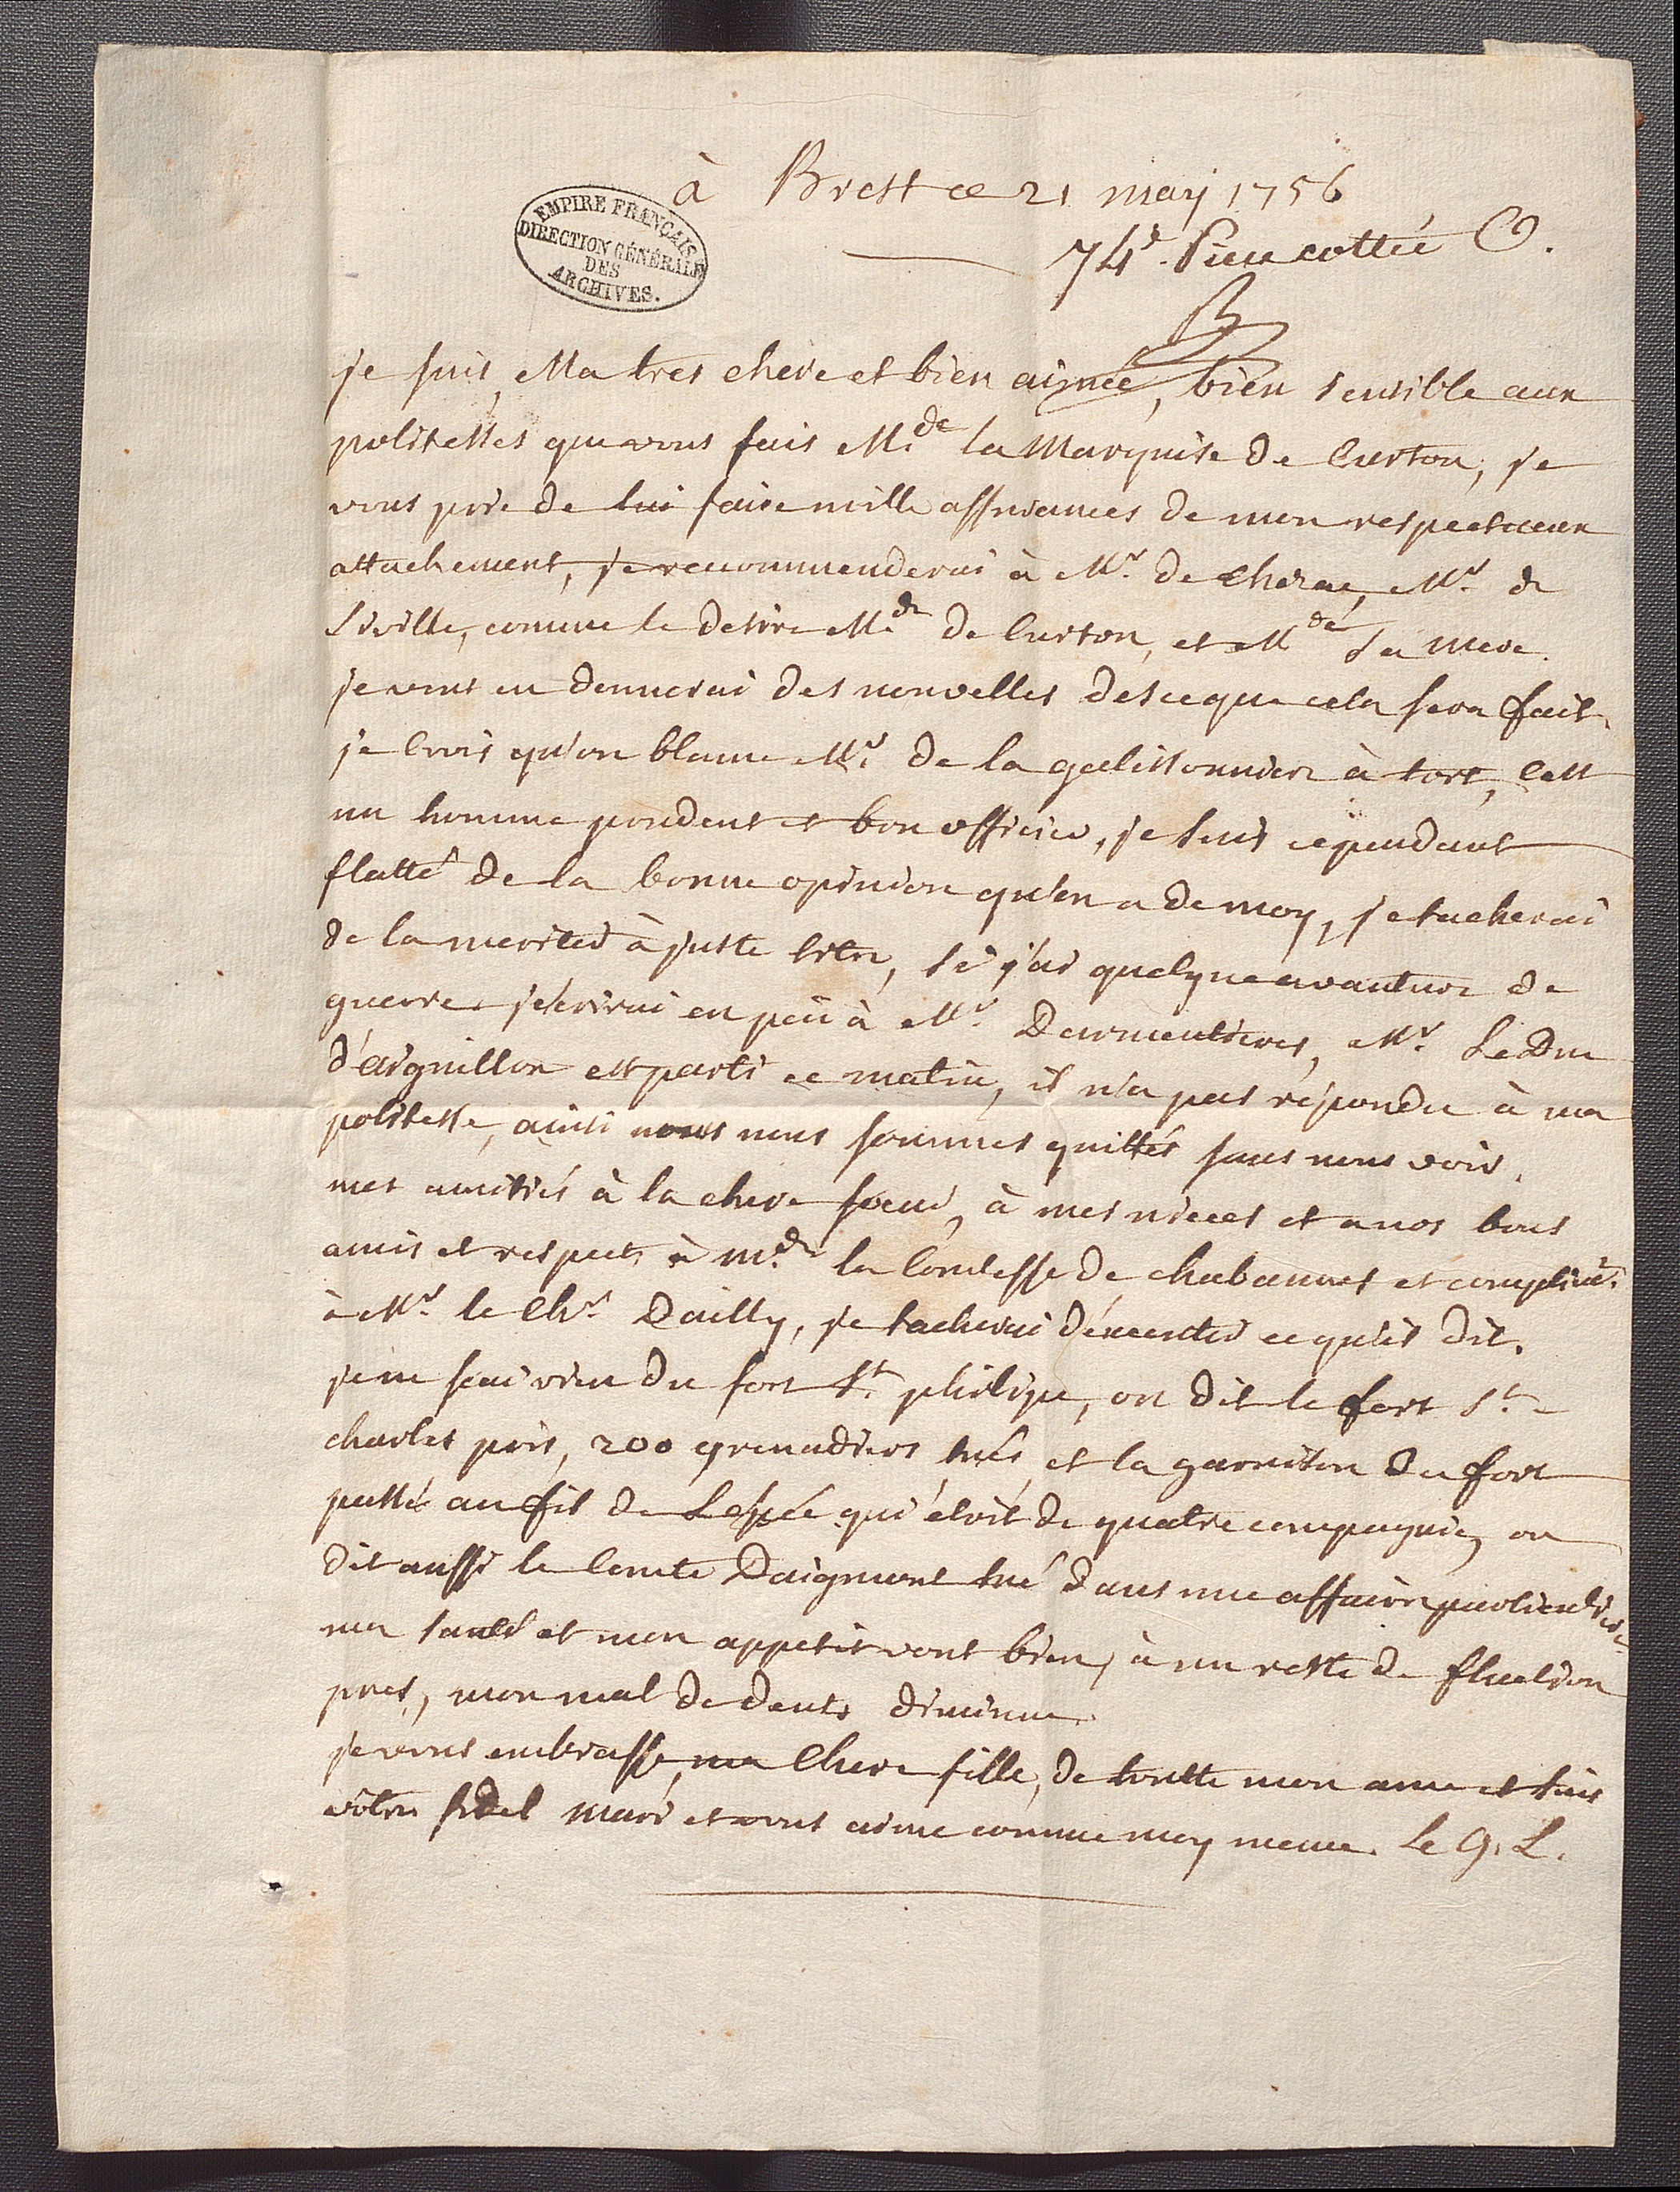 à Brest ce 21 may 1756
EMPIRE FRANÇAIS
DIRECTION GÉNÉRALE
DES
ARCHIVES.
74e. Piece cottée O.
je suis, Ma tres chere et bien aimée, bien sensible aux
politesses que vous fais Mde la Marquise de Curton, je
vous prie de lui faire mille assurances de mon respectueux
attachement, je recommenderai à Mr. de cherac, Mr. de
Siville, comme le desire Mde de Curton, et Mde sa mere.
je vous en donnerai des nouvelles desceque cela sera fait.
je crois qu'on blame Mr. de la galissonniere à tort, c'est
un homme prudent et bon officier, je suis cependant
flatté de la bonne opinion qu'on a de moy, je tacherai
de la meriter à juste titre, si j'ai quelque avanture de
guerre. j'ecrirai en peu à Mr. Darmentieres, Mr. Le Duc
d'aiguillon est parti ce matin, il n'a pas répondu à ma
politesse, ainsi nous nous sommes quittés sans nous voir.
mes amitiés à la chere soeur, à mes nieces et a nos bons
amis et respects à Mde la Comtesse de chabannes et complimts.
à Mr. le Chr. Dailly, je tacherai d'executer ce qu'il dit.
je ne sai rien du fort St. philipe, on dit le fort St.
charles pris, 200 grenadiers tués et la garnison du fort
passée au fil de Lepée qui étoit de quatre compagnie, on
dit aussi le Comte Daigmont tué dans une affaire particuliere
ma santé et mon appetit vont bien, à un reste de fluction
près, mon mal de dents diminue.
je vous embrasse, ma chere fille, de toutte mon ame et suis
votre fidel mari et vous aime comme moy meme. Le G. L.